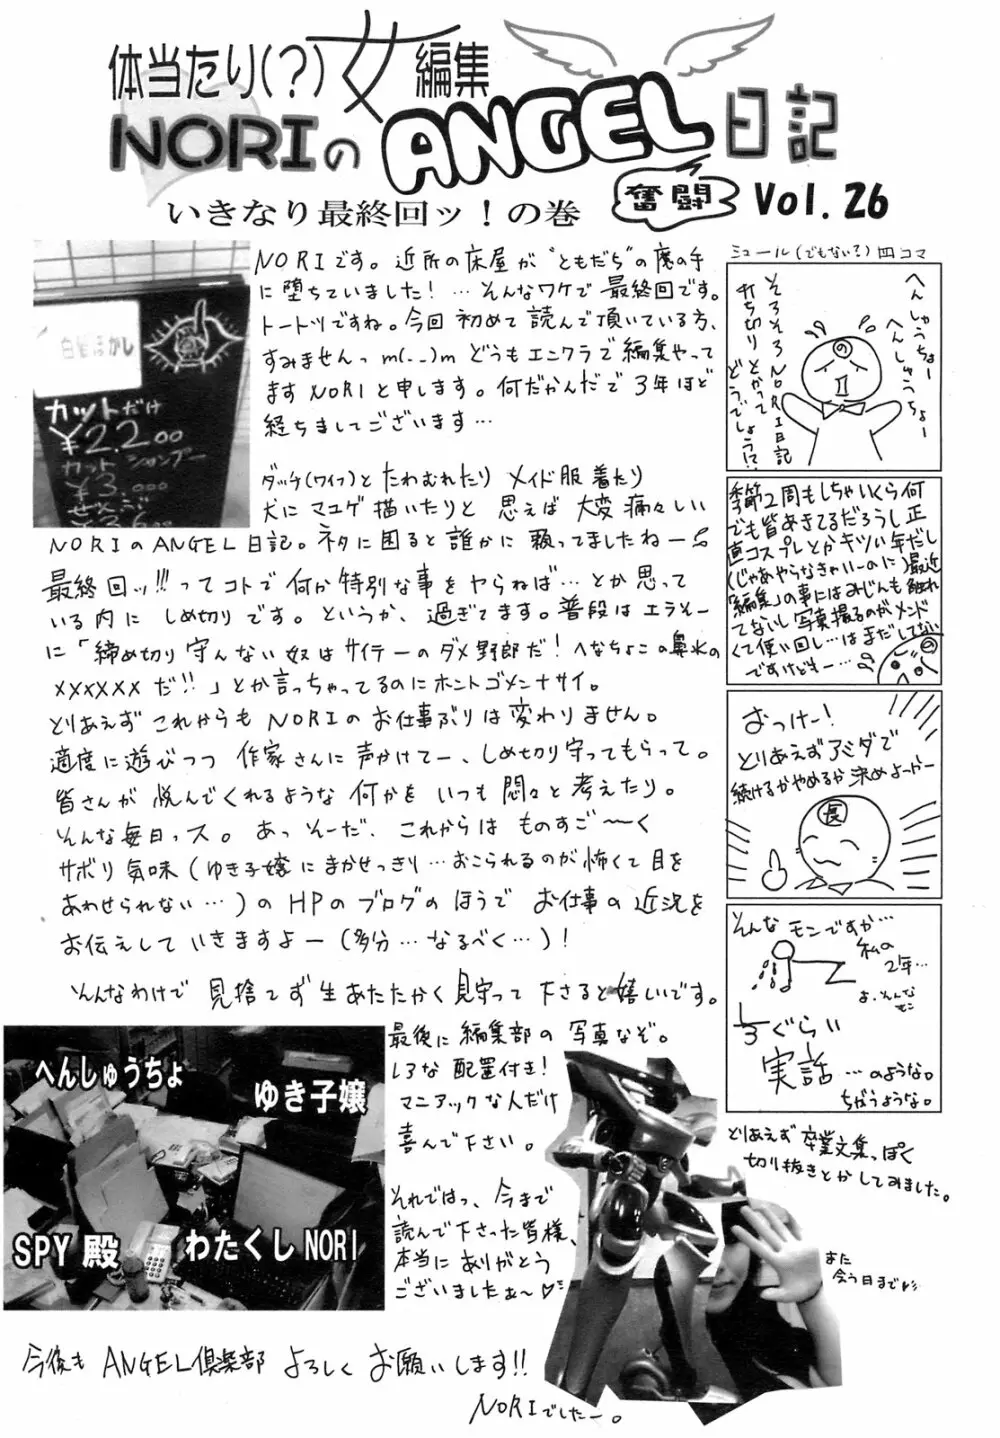 体当たり(?)女編集
NORIの ANGEL 日記
奮闘
Vol. 26
いきなり最終回ッ!の巻
白髪ぼかし
カットだけ
¥2.200
カット シャンプー
¥3.000
ぜんぶ
NORIです。近所の床屋が"ともだち"の魔の手
に堕ちていました! … そんなワケで 最終回です。
トートツですね。今回 初めて 読んで頂いている方、
すみませんっ m(_ _)m どうもエンクラで 編集やって
ます NORIと申します。何だかんだで 3年ほど
経ちましてございます…
ダッチ(ワイフ)と たわむれたり メイド服 着たり
犬に マユゲ 描いたりと 思えば 大変 痛々しい
NORIのANGEL日記。ネタに困ると誰かに 頼ってましたねー
最終回ッ!!! ってコトで 何か特別な事を ヤらねば… とか思って
いる内に しめ切りです。というか、過ぎてます。普段は エラそー
に「締め切り守んない奴は サイテーの ダメ野郎だ! へなちょこの鼻水の
××××××だ!!」とか言っちゃってるのに ホントゴメンナサイ。
とりあえず これからも NORIの お仕事ぶりは変わりません。
適度に遊びつつ 作家さんに 声かけてー、しめ切り守ってもらって。
皆さんが 悦んでくれるような 何かを いつも 悶々と 考えたり。
そんな毎日っス。あっ そーだ、これからは ものすご〜く
サボリ気味(ゆき子嬢にまかせっきり…おこられるのが怖くて目を
あわせられない…)の HPの ブログの ほうで お仕事の 近況を
お伝えして いきますよー(多分… なるべく…)!
そんなわけで 見捨てず 生あたたかく 見守って 下さると 嬉しいです。
へんしゅうちょ
ゆき子嬢
SPY 殿
わたくし NORI
最後に 編集部の 写真なぞ。
いろな 配置付き!
マニアックな人だけ
喜んで下さい。
それではっ、今まで
読んで下さった皆様、
本当に ありがとう
ございましたぁ〜♡
今後も ANGEL倶楽部 よろしく お願いします!!
NORIでしたー。
ミュール(でもない?)四コマ
へんしゅうちょー
へんしゅうちょー
そろそろNORI日記
打ち切り とかって
どうでしょう!?
の
季節2周もしちゃいくら何
でも皆あきてるだろうし正
直コスプレとかキツい年だし
(じゃあやらなきゃいーのに)最近
「編集」の事にはみじんも触れ
てないし写真撮るのがメンド
くて使い回し…はまだしてない
ですけどもー…
おっけー!
とりあえずアミダで
続けるかやめるか 決めよっかー
長
そんな モンですか…
私の
2年…
ま、そんな
モン
1/3ぐらい
実話 …のような。
ちがうような。
とりあえず 卒業文集っぽく
切り抜きとかしてみました。
また
会う日まで